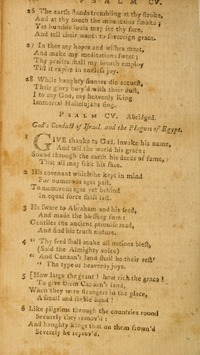 PSALM CV.
26 The earth stands trembling at thy stroke,
And at thy touch the mountains smoke;
Yet humble souls may see thy face,
And tell their wants to sovereign grace.
27 In thee my hopes and wishes meet,
And make my meditations sweet;
Thy praises shall my breath employ
Till it expire in endless joy.
28 While haughty sinners die accurst,
Their glory bury'd with their dust,
I to my God, my heavenly King
Immortal Hallelujahs sing.
PSALM CV. Abridged.
God's Conduct of Israel, and the Plagues of Egypt.
1 GIVE thanks to God, invoke his name,
And tell the world his grace;
Sound through the earth his deeds of fame,
That all may seek his face.
2 His covenant which he kept in mind
For numerous ages past,
To numerous ages yet behind
In equal force shall last.
3 He sware to Abraham and his seed,
And made the blessing sure:
Gentiles the ancient promise read,
And find his truth endure.
4 "Thy seed shall make all nations blest,
(Said the Almighty voice)
"And Canaan's land shall be their rest,
"The type of heavenly joys.
5 [How large the grant! how rich the grace!
To give them Canaan's land,
When they were strangers in the place,
A small and feeble band!
6 Like pilgrims through the countries round
Securely they remov'd;
And haughty kings that on them frown'd
Severely he reprov'd.